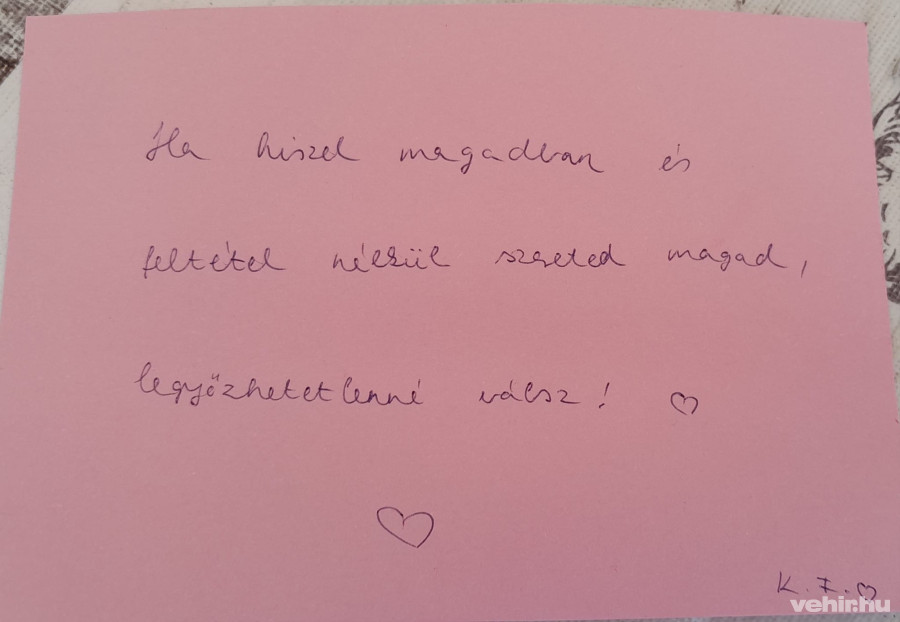 Ha hiszel magadban és
feltétel nélkül szereted magad,
legyőzhetetlenné válsz! ♡
♡
K. F. ♡
vehir.hu